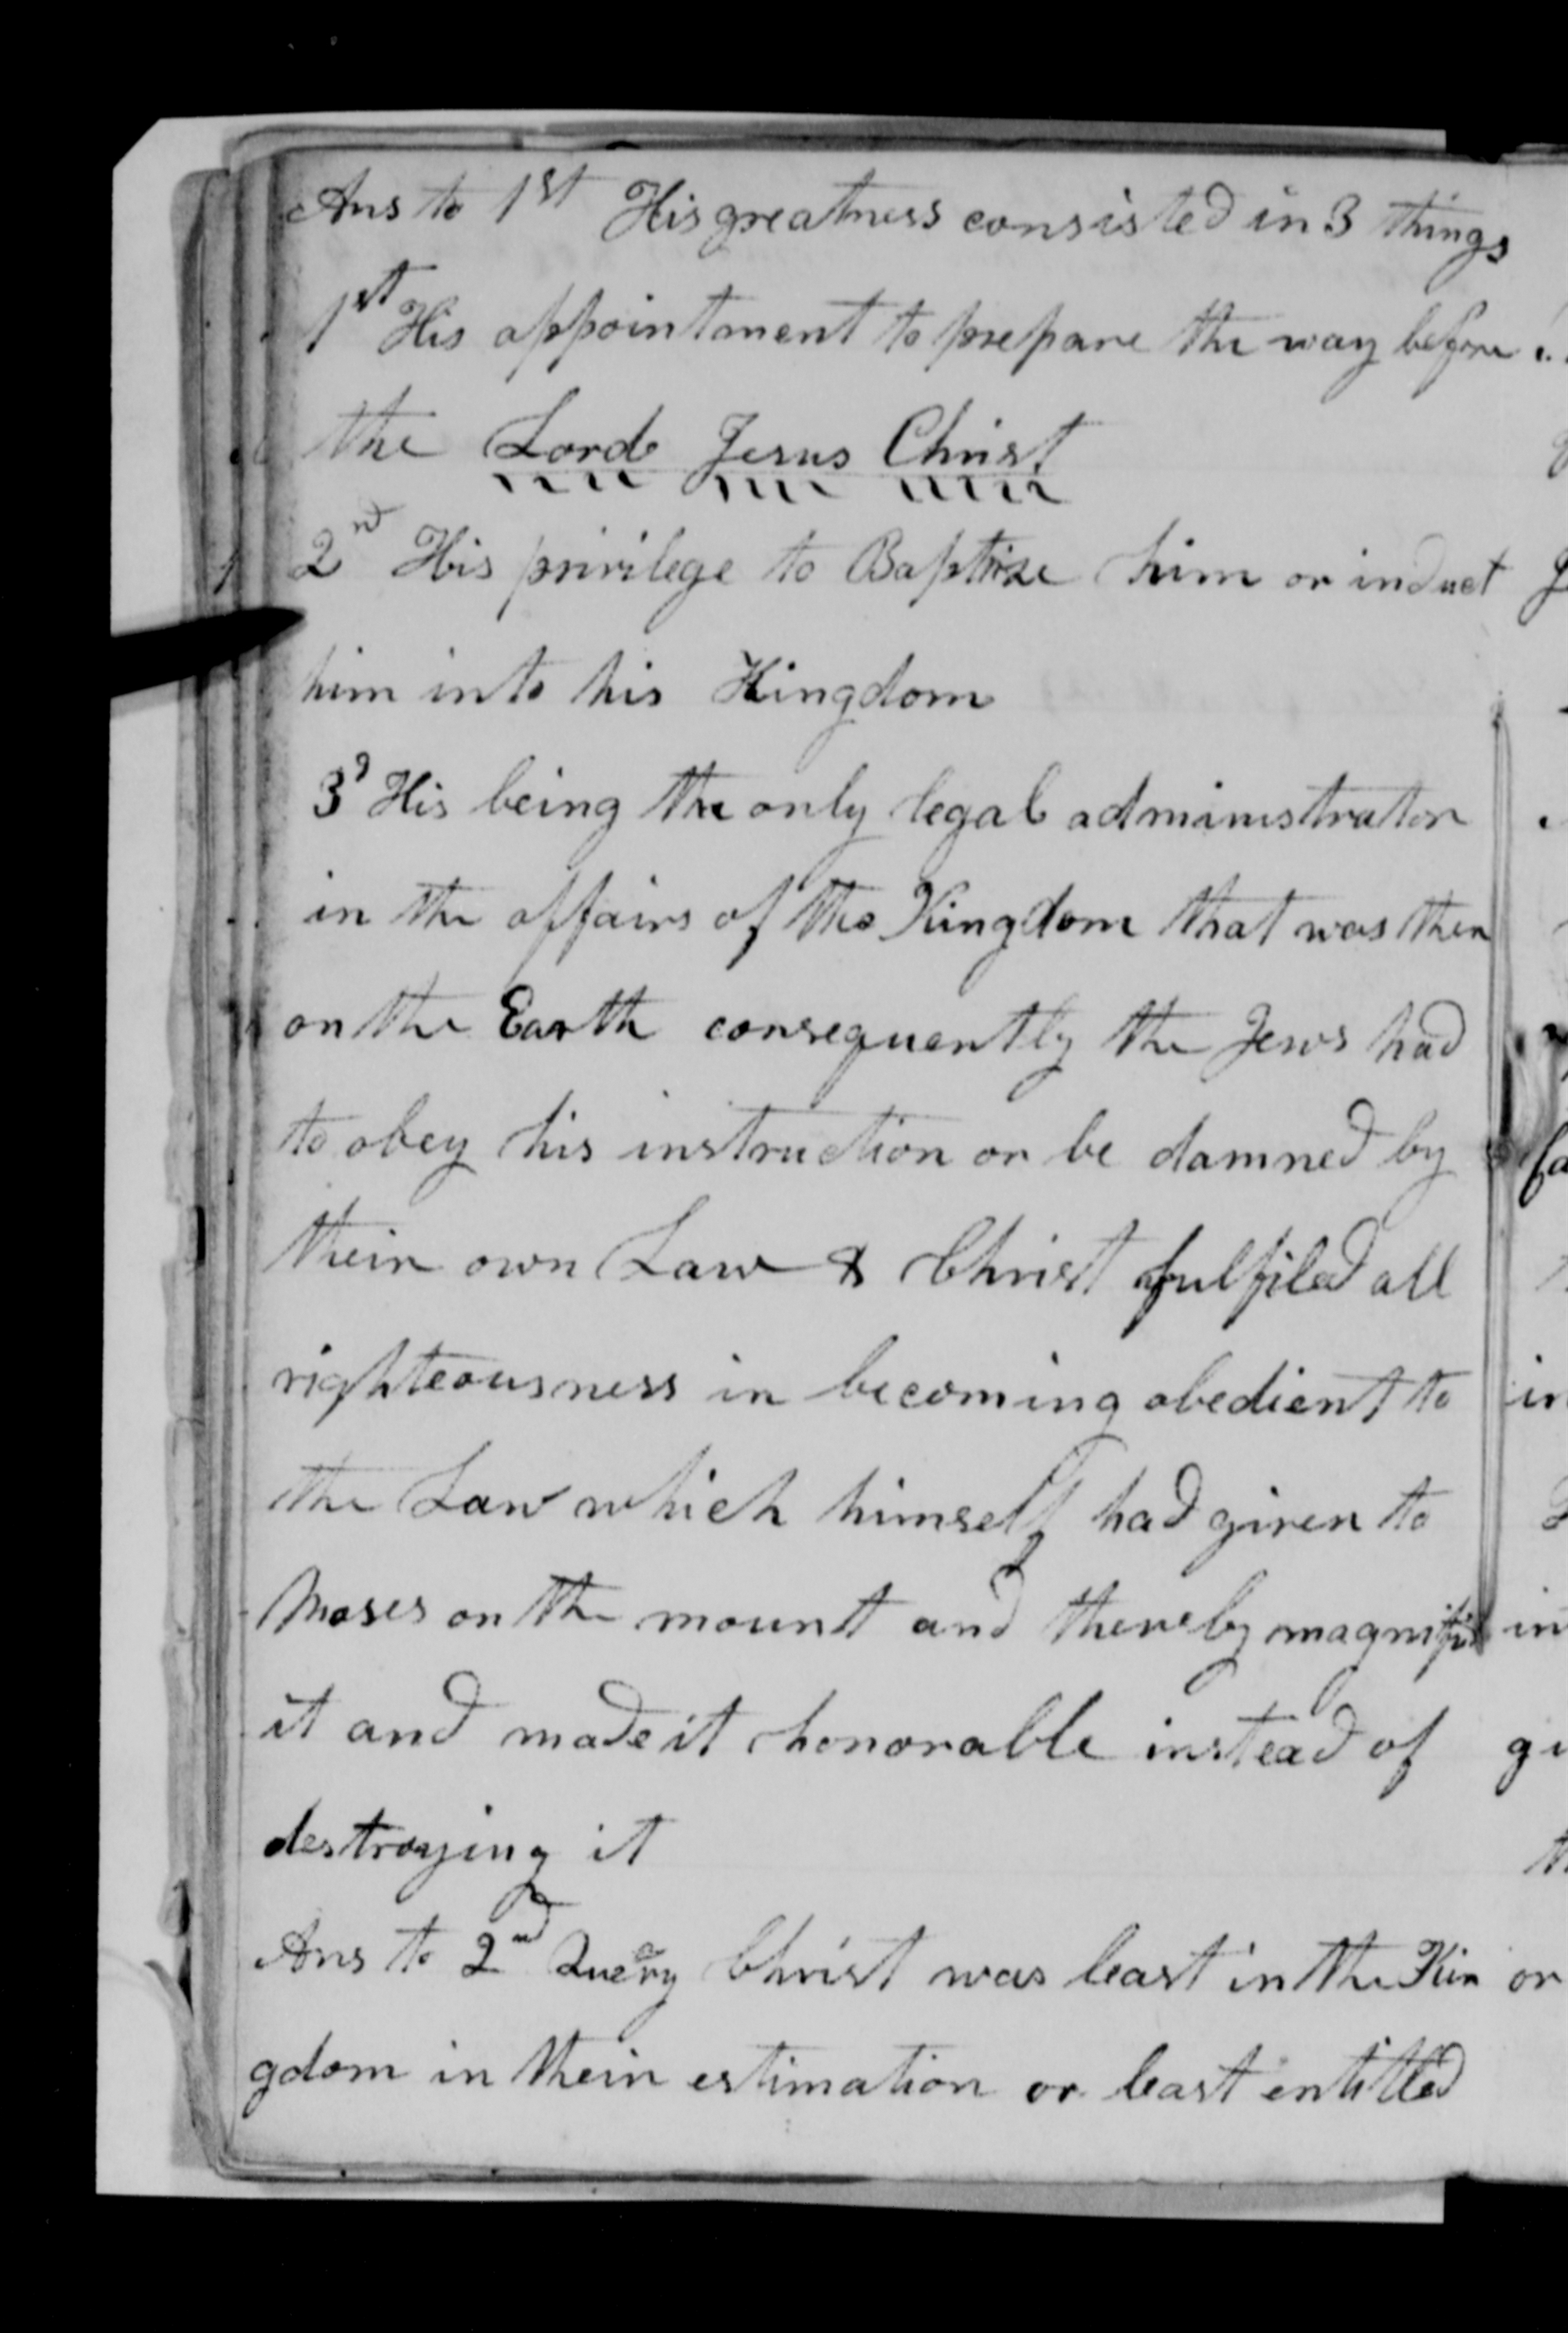 Ans to 1st His greatness consisted in 3 things
1st His appointment to prepare the way before
the Lord Jesus Christ
2nd His privilege to Baptise him or induct
him into his Kingdom
3d His being the only legal administrator
in the affairs of the Kingdom that was then
on the Earth consequently the Jews had
to obey his instruction or be damned by
their own Law & Christ fulfiled all
righteousness in becoming obedient to
the Law which himself had given to
Moses on the mount and thereby magnified
it and made it honorable instead of
destroying it
Ans to 2nd Query Christ was least in the Kin
gdom in their estimation or least entitled